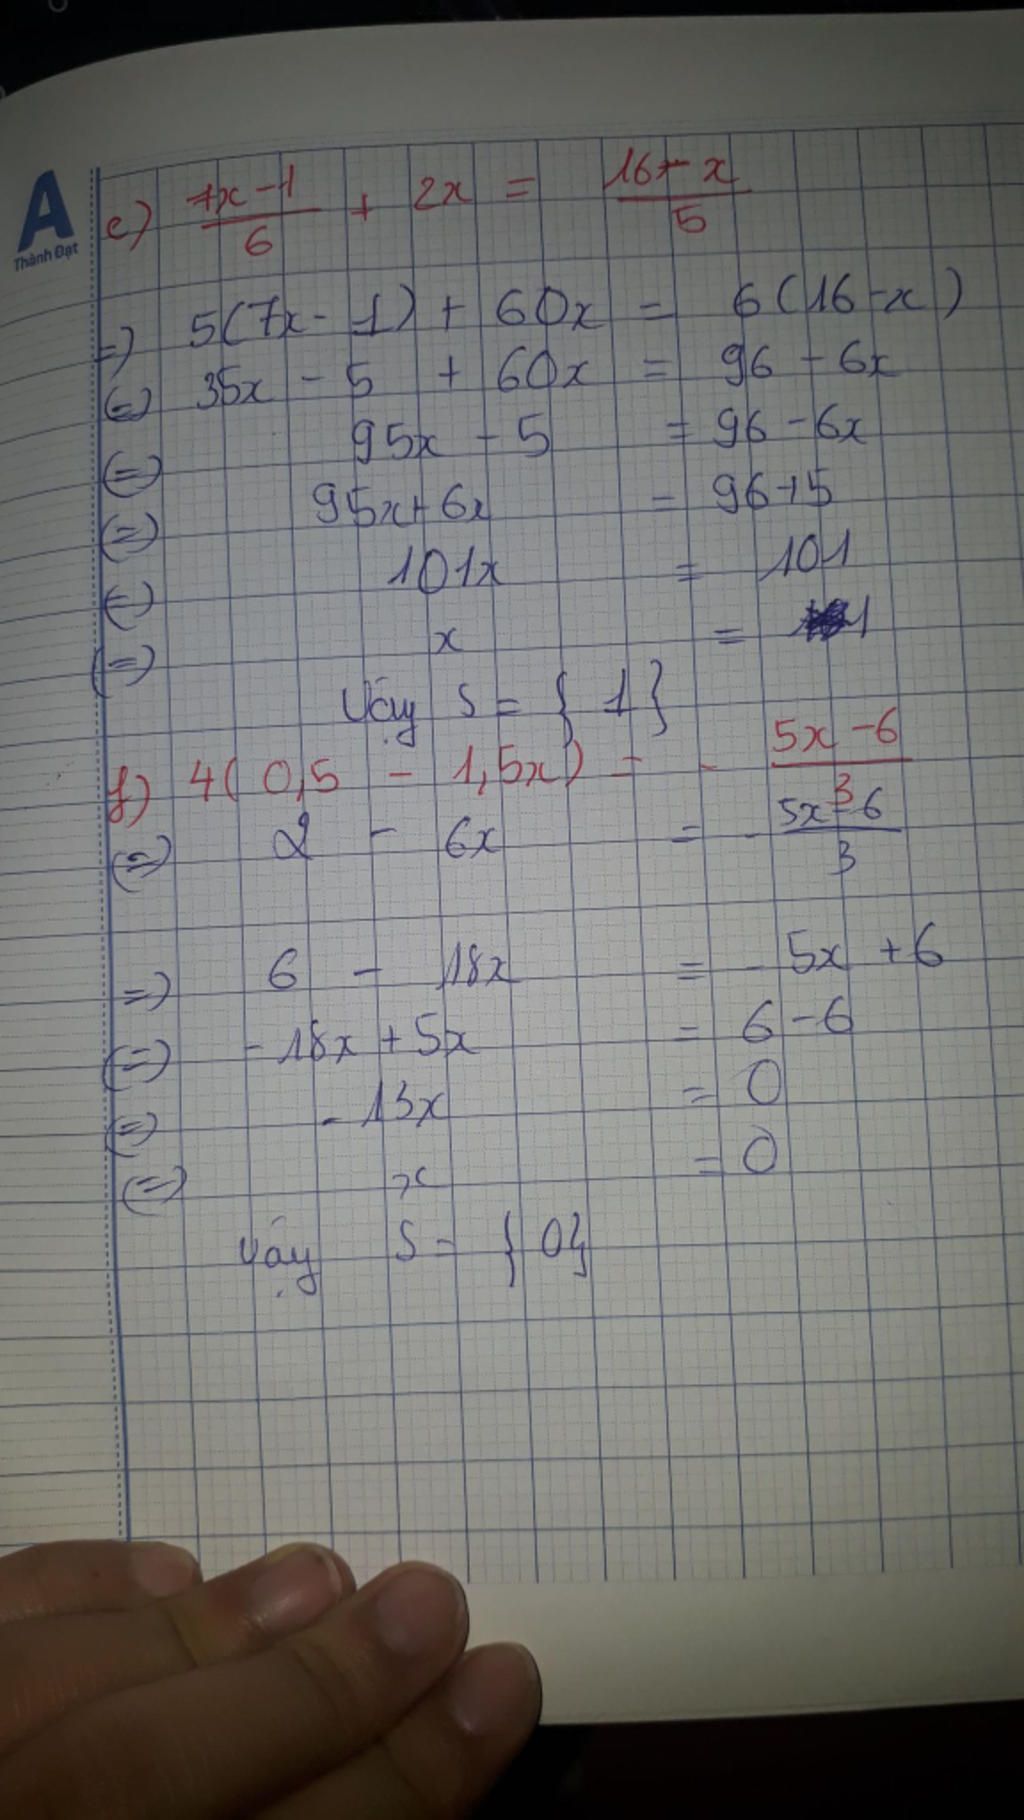 A
Thành Đạt
e) 7x - 1 / 6 + 2x = 16 - x / 5
=) 5(7x - 1) + 60x = 6(16 - x)
(=) 35x - 5 + 60x = 96 - 6x
(=) 95x - 5 = 96 - 6x
(=) 95x + 6x = 96 + 5
(=) 101x = 101
(=) x = 1
Vậy S = { 1 }
f) 4( 0,5 - 1,5x) = - 5x - 6 / 3
(=) 2 - 6x = - 5x - 6 / 3
=) 6 - 18x = - 5x + 6
(=) - 18x + 5x = 6 - 6
(=) - 13x = 0
(=) x = 0
Vậy S = { 0 }